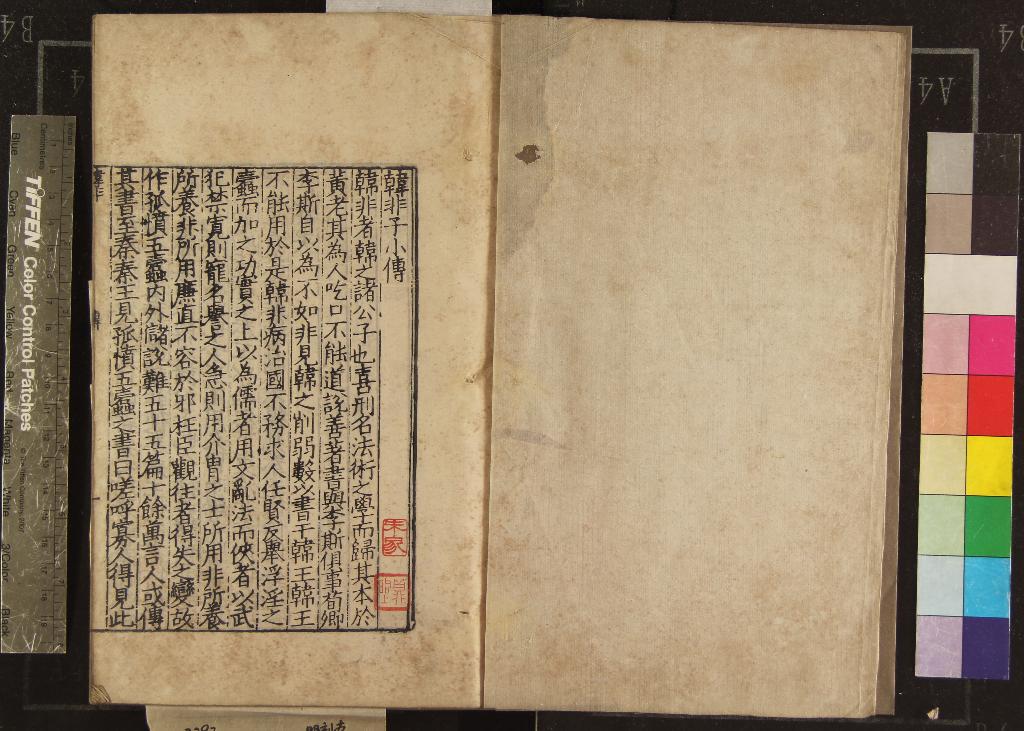 韓非子小傳
韓非者韓之諸公子也喜刑名法術之學而歸其本於
黃老其為人吃口不能道說善著書與李斯俱事荀卿
李斯自以為不如非見韓之削弱數以書干韓王韓王
不能用於是韓非病治國不務求人任賢反舉浮淫之
蠹而加之功實之上以為儒者用文亂法而俠者以武
犯禁寬則寵名譽之人急則用介胄之士所用非所養
所養非所用廉直不容於邪枉臣觀往者得失之變故
作孤憤五蠹內外儲說難五十五篇十餘萬言人或傳
其書至秦秦王見孤憤五蠹之書曰嗟呼寡人得見此
韓非
TIFFEN Color Control Patches
Centimetres
Inches
Blue
Cyan
Green
Yellow
Red
Magenta
White
3/Color
Black
B4
A4